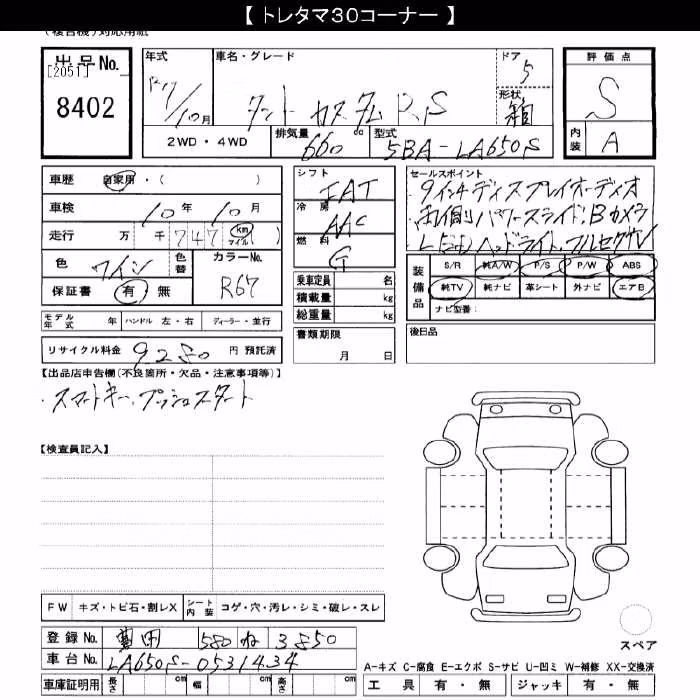 【 トレタマ30コーナー 】
(複合機)対応用紙
出品No. [2051] 8402
年式 R7/10月
車名・グレード タント カスタム RS
ドア 5
形状 箱
評価点 S
内装 A
2WD・4WD
排気量 660 cc
型式 5BA-LA650S
車歴 自家用・( )
車検 10年 10月
走行 万 千 747 km マイル
色 ワイン 色替
カラーNo. R67
保証書 有 無
シフト IAT
冷房 AAC
燃料 G
乗車定員 名
積載量 kg
総重量 kg
セールスポイント
9インチディスプレイオーディオ
両側パワースライド、Bカメラ
LEDヘッドライト、フルセグTV
装備品 S/R 純A/W P/S P/W ABS
純TV 純ナビ 革シート 外ナビ エアB
ナビ型番:
モデル年式 年 ハンドル 左・右 ディーラー・並行
書類期限 月 日
後日品
リサイクル料金 9280 円 預託済
【出品店申告欄(不良箇所・欠品・注意事項等)】
・スマートキー、プッシュスタート
【検査員記入】
FW キズ・トビ石・割レX シート内装 コゲ・穴・汚レ・シミ・破レ・スレ
登録No. 580 ね 3850
車台No. LA650S-0531434
車庫証明用 長さ cm 幅 cm 高さ cm
スペア
A-キズ C-腐食 E-エクボ S-サビ U-凹ミ W-補修 XX-交換済
工具 有・無 ジャッキ 有・無